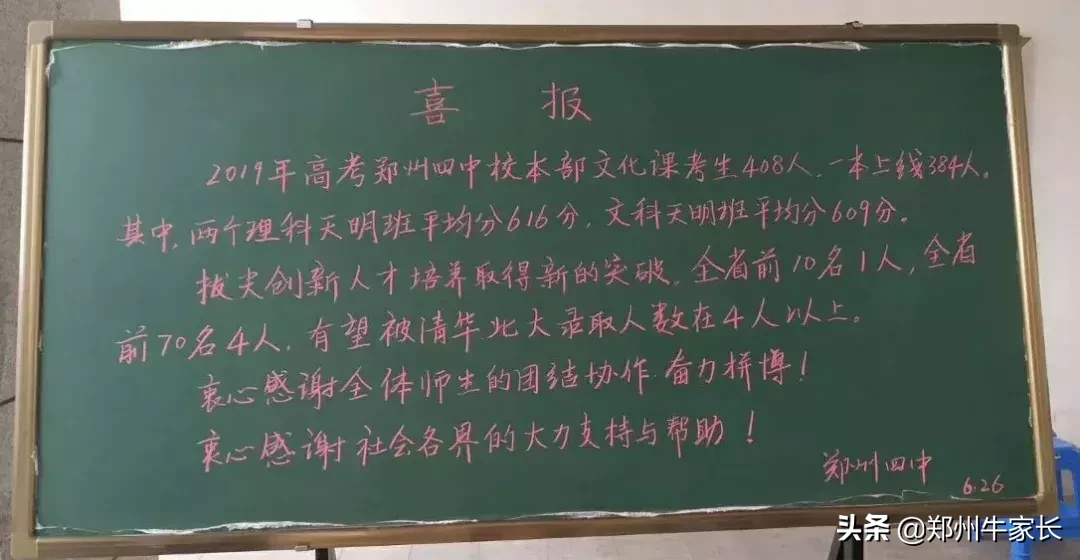 喜 报
2019年高考郑州四中校本部文化课考生408人,一本上线384人。
其中,两个理科天明班平均分616分,文科天明班平均分609分。
拔尖创新人才培养取得新的突破,全省前10名1人,全省
前70名4人,有望被清华北大录取人数在4人以上。
衷心感谢全体师生的团结协作 奋力拼博!
衷心感谢社会各界的大力支持与帮助!
郑州四中
6.26
头条 @郑州牛家长